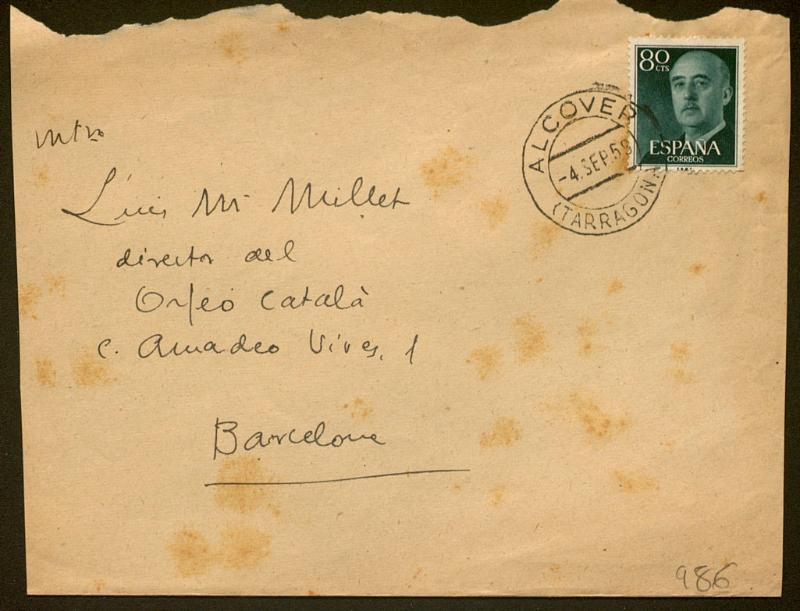 80
CTS
ESPAÑA
CORREOS
ALCOVER
-4.SEP.59
(TARRAGONA)
Mtro
Lluis Mª Millet
director del
Orfeó Català
c. Amadeo Vives, 1
Barcelona
986